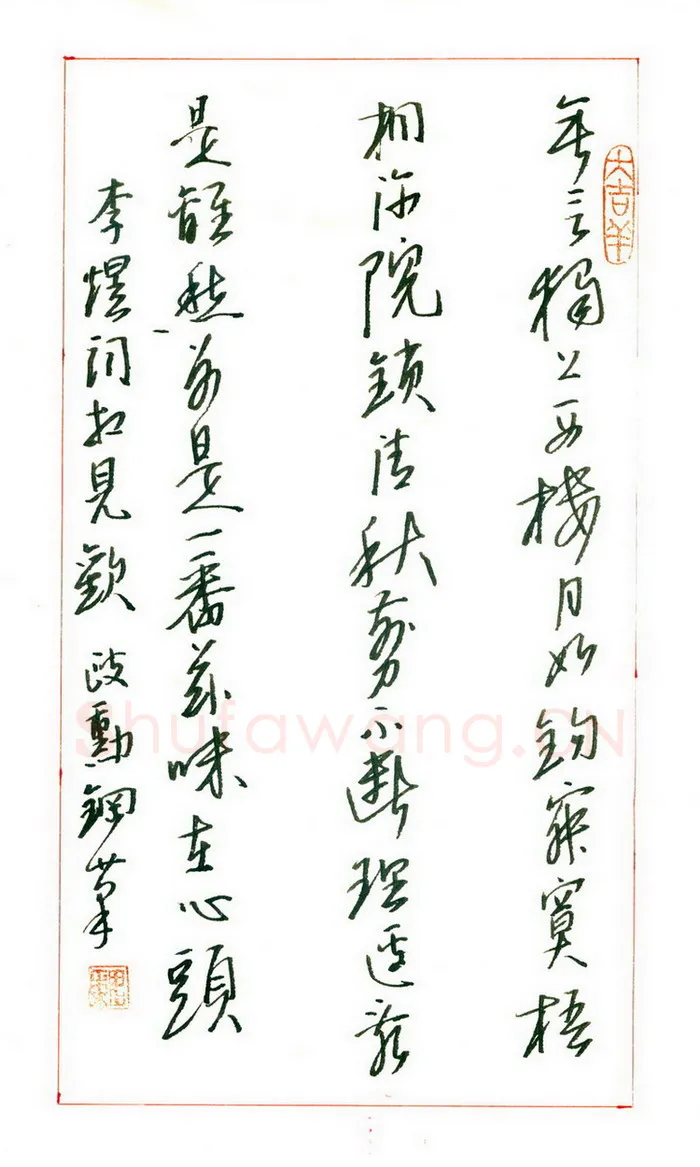 大吉羊
無言獨上西樓月如鉤寂寞梧
桐深院鎖清秋剪不斷理還亂
是離愁別是一番滋味在心頭
李煜詞相見歡 勳鋼筆
Shufawang.CN